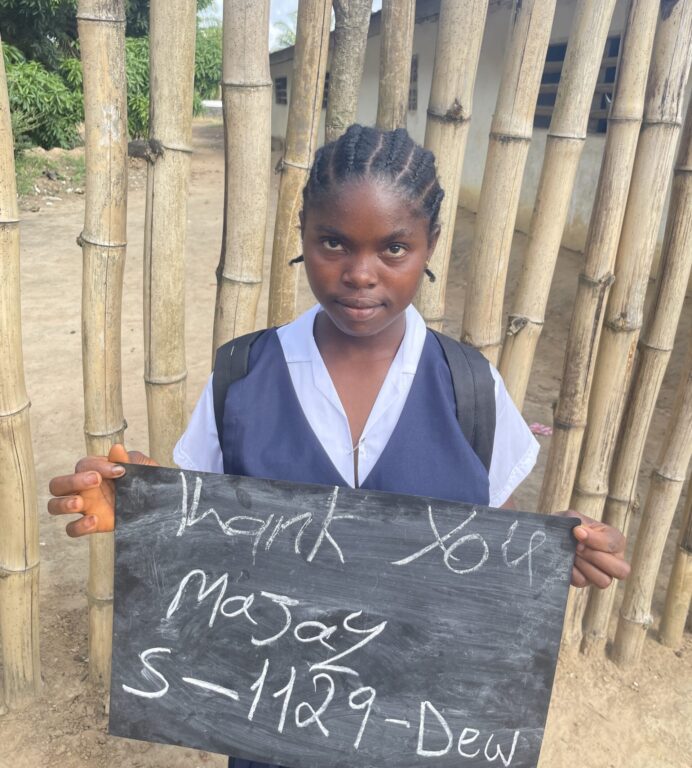 Thank You
Majay
S-1129-Dew